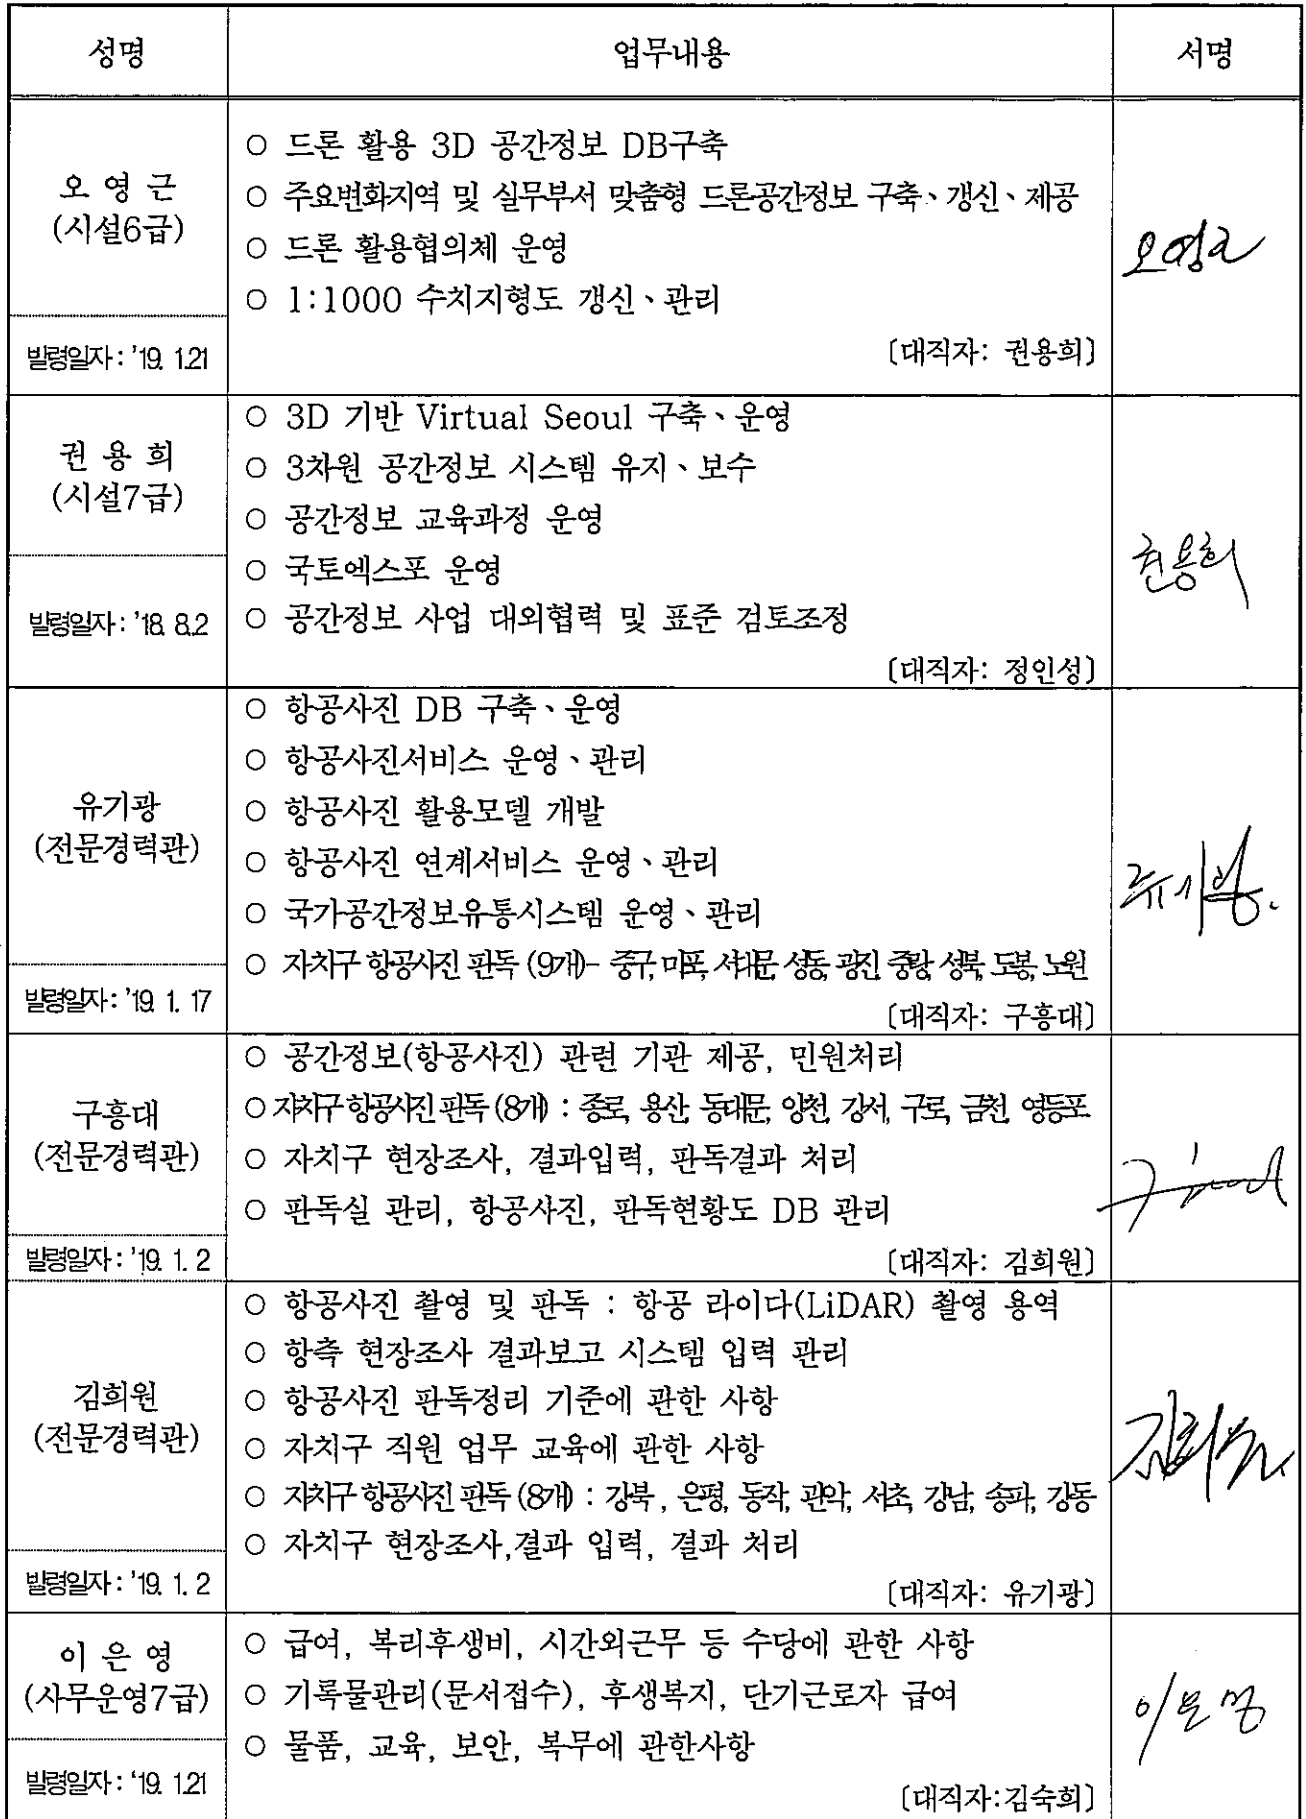 성명 업무내용 서명
오 영 근
(시설6급)
발령일자 : '19. 1.21
○ 드론 활용 3D 공간정보 DB구축
○ 주요변화지역 및 실무부서 맞춤형 드론공간정보 구축、갱신、제공
○ 드론 활용협의체 운영
○ 1:1000 수치지형도 갱신、관리
〔대직자: 권용희〕
오영근
권 용 희
(시설7급)
발령일자 : '18. 8.2
○ 3D 기반 Virtual Seoul 구축、운영
○ 3차원 공간정보 시스템 유지、보수
○ 공간정보 교육과정 운영
○ 국토엑스포 운영
○ 공간정보 사업 대외협력 및 표준 검토조정
〔대직자: 정인성〕
권용희
유기광
(전문경력관)
발령일자 : '19. 1. 17
○ 항공사진 DB 구축、운영
○ 항공사진서비스 운영、관리
○ 항공사진 활용모델 개발
○ 항공사진 연계서비스 운영、관리
○ 국가공간정보유통시스템 운영、관리
○ 자치구 항공사진 판독 (9개)- 중구, 마포, 서대문, 성동, 광진, 중랑, 성북, 도봉, 노원
〔대직자: 구흥대〕
유기광
구흥대
(전문경력관)
발령일자 : '19. 1. 2
○ 공간정보(항공사진) 관련 기관 제공, 민원처리
○ 자치구 항공사진 판독 (8개) : 종로, 용산, 동대문, 양천, 강서, 구로, 금천, 영등포
○ 자치구 현장조사, 결과입력, 판독결과 처리
○ 판독실 관리, 항공사진, 판독현황도 DB 관리
〔대직자: 김희원〕
구흥대
김희원
(전문경력관)
발령일자 : '19. 1. 2
○ 항공사진 촬영 및 판독 : 항공 라이다(LiDAR) 촬영 용역
○ 항측 현장조사 결과보고 시스템 입력 관리
○ 항공사진 판독정리 기준에 관한 사항
○ 자치구 직원 업무 교육에 관한 사항
○ 자치구 항공사진 판독 (8개) : 강북, 은평, 동작, 관악, 서초, 강남, 송파, 강동
○ 자치구 현장조사,결과 입력, 결과 처리
〔대직자: 유기광〕
김희원
이 은 영
(사무운영7급)
발령일자 : '19. 1.21
○ 급여, 복리후생비, 시간외근무 등 수당에 관한 사항
○ 기록물관리(문서접수), 후생복지, 단기근로자 급여
○ 물품, 교육, 보안, 복무에 관한사항
〔대직자:김숙희〕
이은영